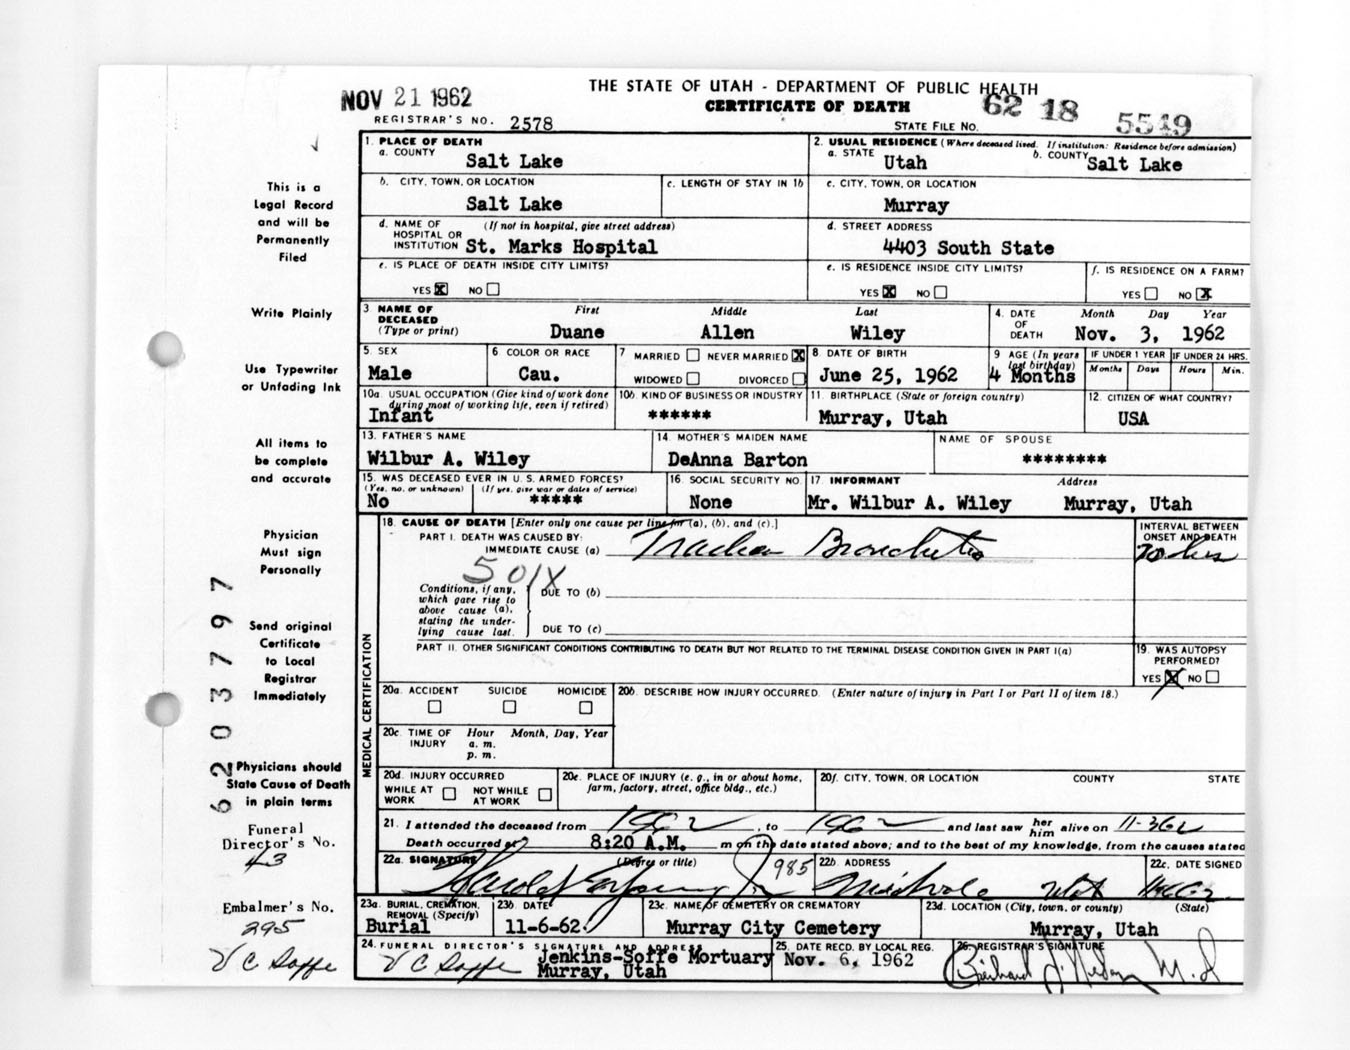 THE STATE OF UTAH - DEPARTMENT OF PUBLIC HEALTH
NOV 21 1962
CERTIFICATE OF DEATH 62 18 5549
REGISTRAR'S NO. 2578
STATE FILE NO.
1. PLACE OF DEATH
a. COUNTY Salt Lake
2. USUAL RESIDENCE (Where deceased lived. If institution: Residence before admission)
a. STATE Utah b. COUNTY Salt Lake
b. CITY, TOWN, OR LOCATION
Salt Lake
c. LENGTH OF STAY IN 1b
c. CITY, TOWN, OR LOCATION
Murray
d. NAME OF HOSPITAL OR INSTITUTION (If not in hospital, give street address)
St. Marks Hospital
d. STREET ADDRESS
4403 South State
e. IS PLACE OF DEATH INSIDE CITY LIMITS?
YES X NO
e. IS RESIDENCE INSIDE CITY LIMITS?
YES X NO
f. IS RESIDENCE ON A FARM?
YES NO X
3 NAME OF DECEASED (Type or print)
First Middle Last
Duane Allen Wiley
4. DATE OF DEATH Month Day Year
Nov. 3, 1962
5. SEX
Male
6 COLOR OR RACE
Cau.
7 MARRIED NEVER MARRIED X
WIDOWED DIVORCED
8 DATE OF BIRTH
June 25, 1962
9 AGE (In years last birthday)
4 Months
IF UNDER 1 YEAR
Months Days
IF UNDER 24 HRS.
Hours Min.
10a. USUAL OCCUPATION (Give kind of work done during most of working life, even if retired)
Infant
10b. KIND OF BUSINESS OR INDUSTRY
******
11. BIRTHPLACE (State or foreign country)
Murray, Utah
12. CITIZEN OF WHAT COUNTRY?
USA
13. FATHER'S NAME
Wilbur A. Wiley
14. MOTHER'S MAIDEN NAME
DeAnna Barton
NAME OF SPOUSE
********
15. WAS DECEASED EVER IN U. S. ARMED FORCES?
(Yes, no, or unknown) (If yes, give war or dates of service)
No *****
16. SOCIAL SECURITY NO.
None
17. INFORMANT Address
Mr. Wilbur A. Wiley Murray, Utah
MEDICAL CERTIFICATION
18. CAUSE OF DEATH [Enter only one cause per line for (a), (b), and (c).]
PART I. DEATH WAS CAUSED BY:
IMMEDIATE CAUSE (a)
INTERVAL BETWEEN ONSET AND DEATH
501X
Conditions, if any, which gave rise to above cause (a), stating the underlying cause last.
DUE TO (b)
DUE TO (c)
PART II. OTHER SIGNIFICANT CONDITIONS CONTRIBUTING TO DEATH BUT NOT RELATED TO THE TERMINAL DISEASE CONDITION GIVEN IN PART I(a)
19. WAS AUTOPSY PERFORMED?
YES X NO
20a. ACCIDENT SUICIDE HOMICIDE
20b. DESCRIBE HOW INJURY OCCURRED. (Enter nature of injury in Part I or Part II of item 18.)
20c. TIME OF INJURY Hour Month, Day, Year
a. m.
p. m.
20d. INJURY OCCURRED
WHILE AT WORK NOT WHILE AT WORK
20e. PLACE OF INJURY (e. g., in or about home, farm, factory, street, office bldg., etc.)
20f. CITY, TOWN, OR LOCATION COUNTY STATE
21. I attended the deceased from 1962, to 1962 and last saw her him alive on 11-3 62
Death occurred at 8:20 A.M. m on the date stated above; and to the best of my knowledge, from the causes stated
22a. SIGNATURE (Degree or title)
985
22b. ADDRESS
Midvale Utah
22c. DATE SIGNED
23a. BURIAL, CREMATION, REMOVAL (Specify)
Burial
23b. DATE
11-6-62
23c. NAME OF CEMETERY OR CREMATORY
Murray City Cemetery
23d. LOCATION (City, town, or county) (State)
Murray, Utah
24. FUNERAL DIRECTOR'S SIGNATURE AND ADDRESS
Jenkins-Soffe Mortuary
Murray, Utah
25. DATE RECD. BY LOCAL REG.
Nov. 6, 1962
26. REGISTRAR'S SIGNATURE
This is a
Legal Record
and will be
Permanently
Filed
Write Plainly
Use Typewriter
or Unfading Ink
All items to
be complete
and accurate
Physician
Must sign
Personally
Send original
Certificate
to Local
Registrar
Immediately
Physicians should
State Cause of Death
in plain terms
Funeral
Director's No.
43
Embalmer's No.
295
V C Soffe
V C Soffe
6203797